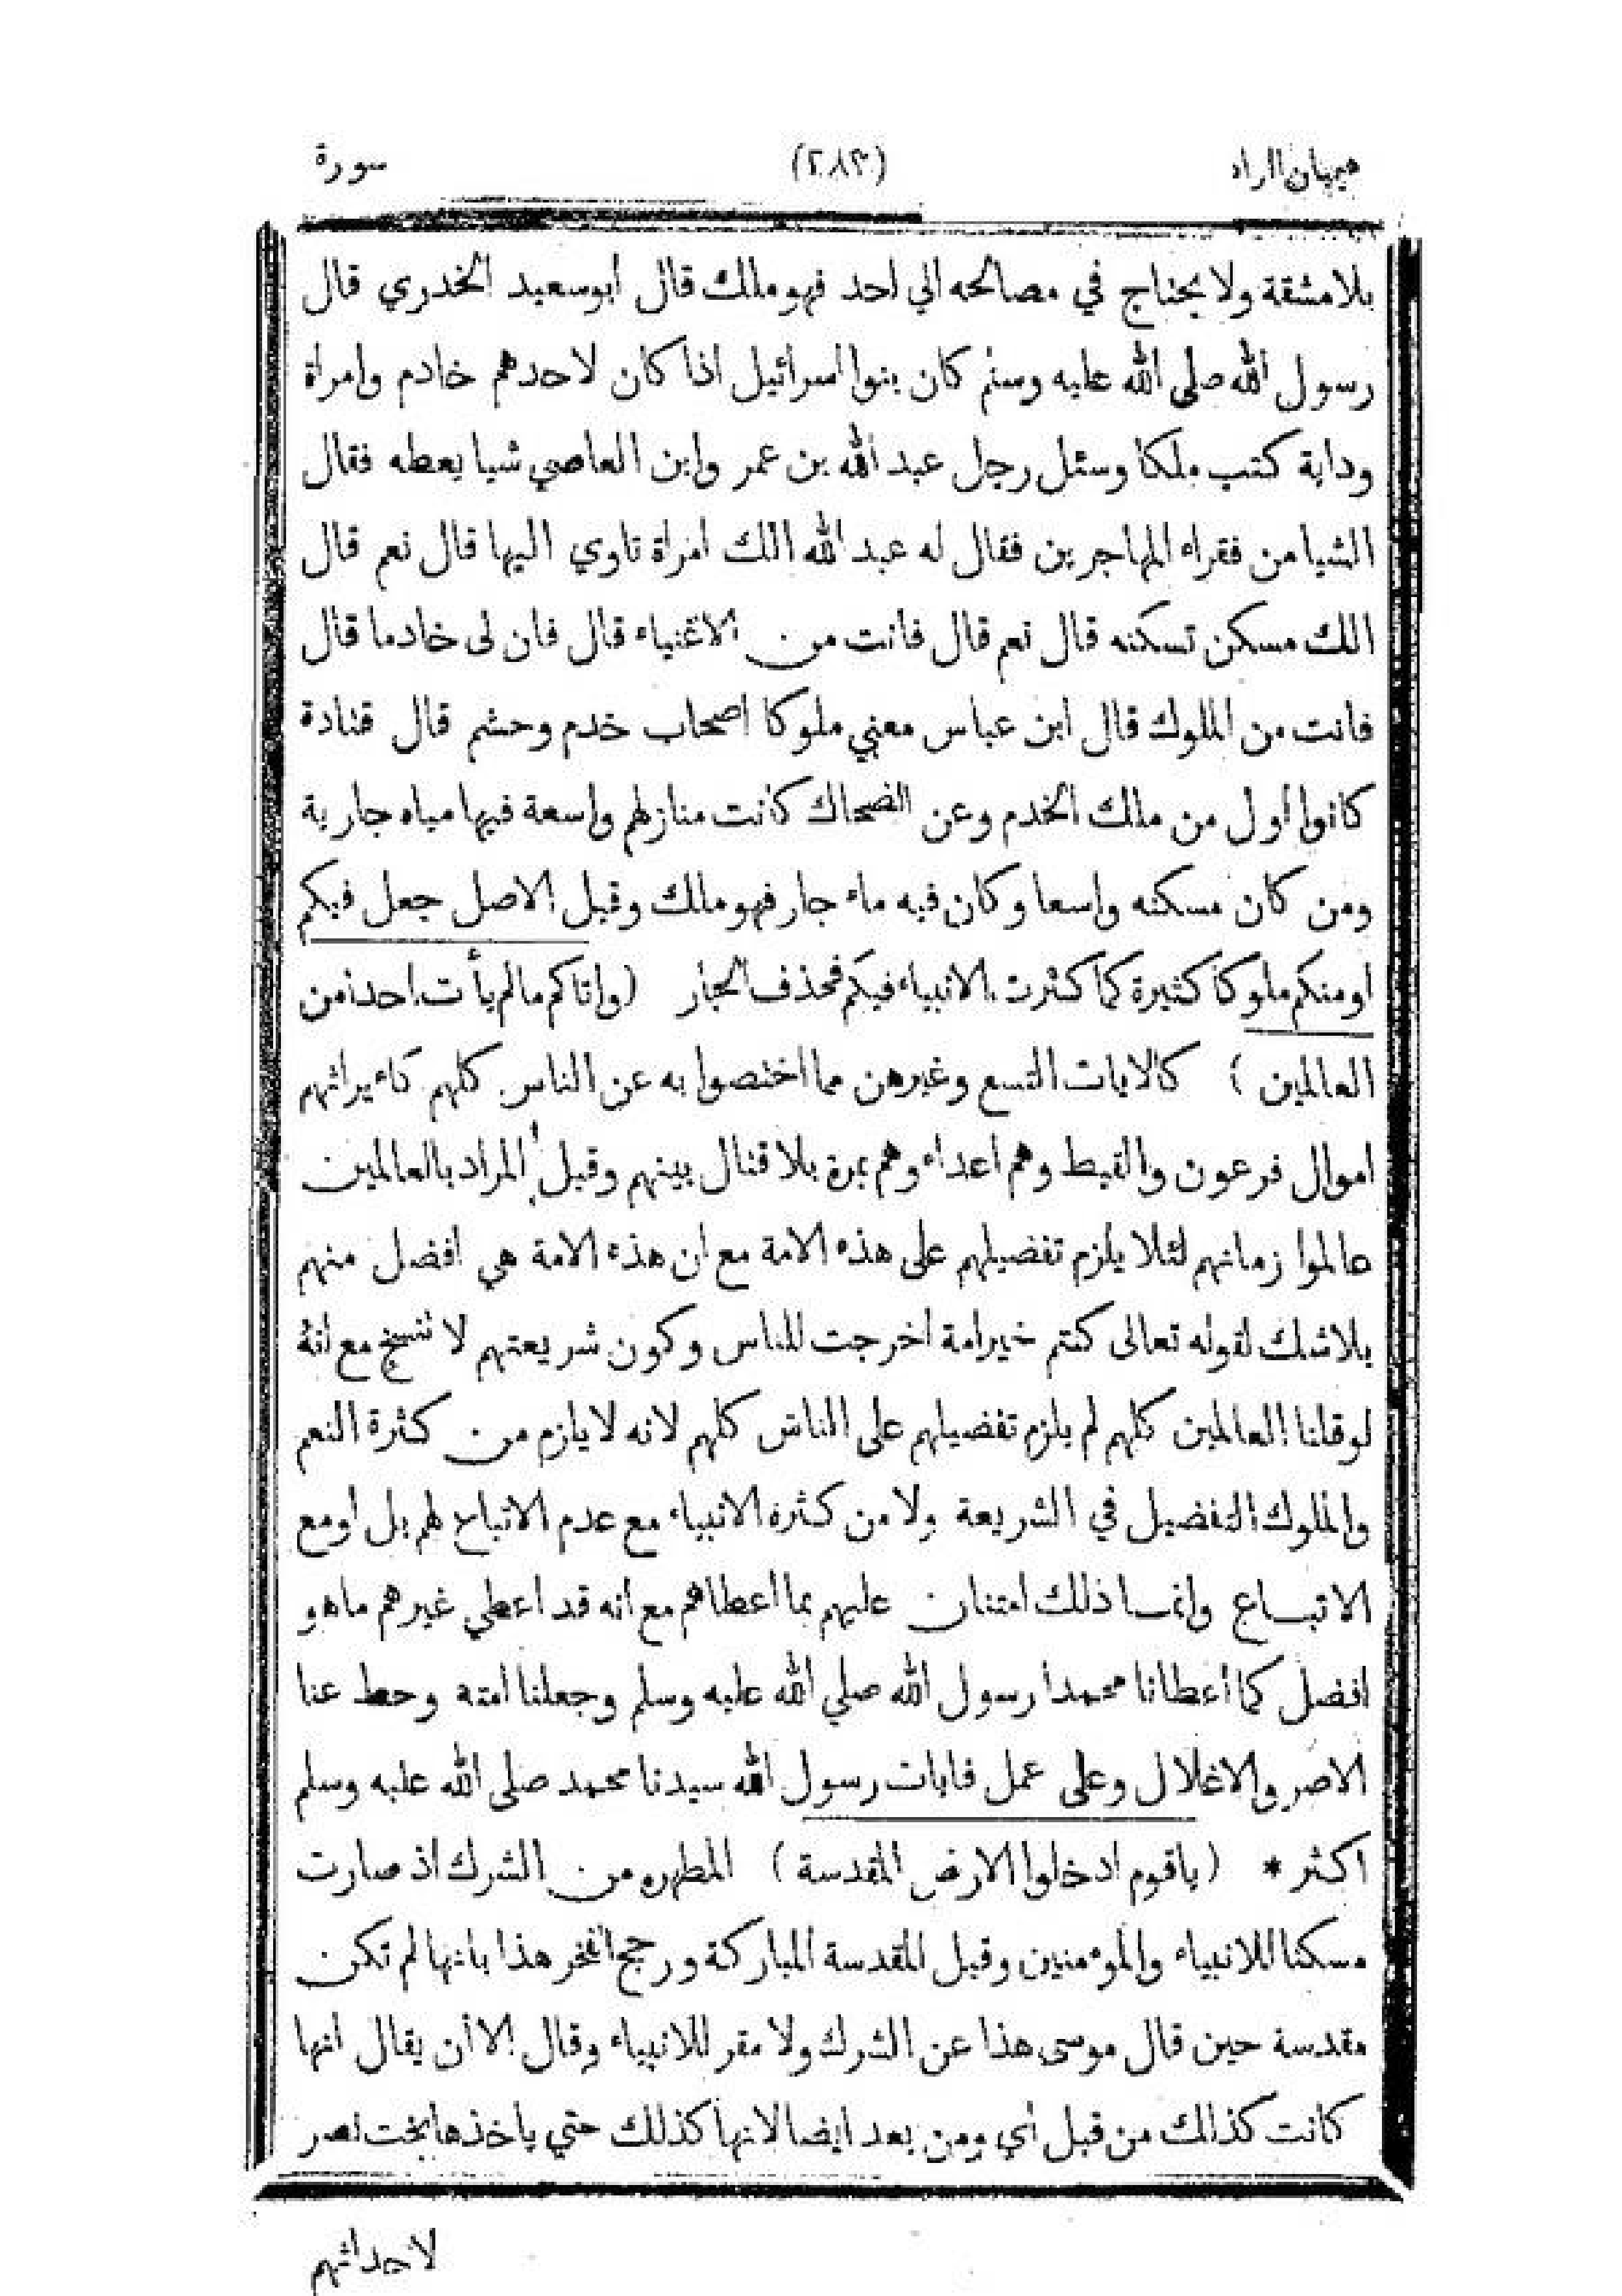 هيميان الزاد (٢٨٣) سورة
بلا مشقة ولا يحتاج في مصالحه الي احد فهو ملك قال أبو سعيد الخدري قال
رسول الله صلى الله عليه وسلم كان بنوا اسرائيل اذا كان لاحدهم خادم وامراة
ودابة كتب ملكا وسئل رجل عبد الله بن عمر وابن العاصي شيا يعطه فقال
الشيا من فقراء المهاجرين فقال له عبد الله الك امراة تاوي اليها قال نعم قال
الك مسكن تسكنه قال نعم قال فانت من الاغنياء قال فان لى خادما قال
فانت من الملوك قال ابن عباس معني ملوكا اصحاب خدم وحشم قال قتادة
كانوا اول من ملك الخدم وعن الضحاك كانت منازلهم واسعة فيها مياه جارية
ومن كان مسكنه واسعا وكان فيه ماء جار فهو ملك وقيل الاصل جعل فيكم
او منكم ملوكا كثيرة كما كثرت الانبياء فيكم فحذف الجار (واتاكم ما لم يأت احدا من
العالمين) كالايات التسع وغيرهن مما اختصوا به عن الناس كلهم كايراثهم
اموال فرعون والقبط وهم اعداء وهم بمرة بلا قتال بينهم وقيل المراد بالعالمين
عالموا زمانهم لئلا يلزم تفضيلهم على هذه الامة مع ان هذه الامة هي افضل منهم
بلا شك لقوله تعالى كنتم خير امة اخرجت للناس وكون شريعتهم لا تنسخ مع انه
لو قلنا العالمين كلهم لم يلزم تفضيلهم على الناس كلهم لانه لا يلزم من كثرة النعم
والملوك التفضيل في الشريعة ولا من كثرة الانبياء مع عدم الاتباع لهم بل او مع
الاتباع وانما ذلك امتنان عليهم بما اعطاهم مع انه قد اعطي غيرهم ما هو
افضل كما أعطانا محمدا رسول الله صلي الله عليه وسلم وجعلنا امته وحط عنا
الاصر والاغلال وعلى عمل فايات رسول الله سيدنا محمد صلى الله عليه وسلم
اكثر * (ياقوم ادخلوا الارض المقدسة) المطهره من الشرك اذ صارت
مسكنا للانبياء والمؤمنين وقيل المقدسة المباركة ورجح الفخر هذا بأنها لم تكن
مقدسة حين قال موسى هذا عن الشرك ولا مقر للانبياء وقال الا أن يقال انها
كانت كذالك من قبل أي ومن بعد ايضا لانها كذلك حتي ياخذها بخت نصر
لاحداثهم